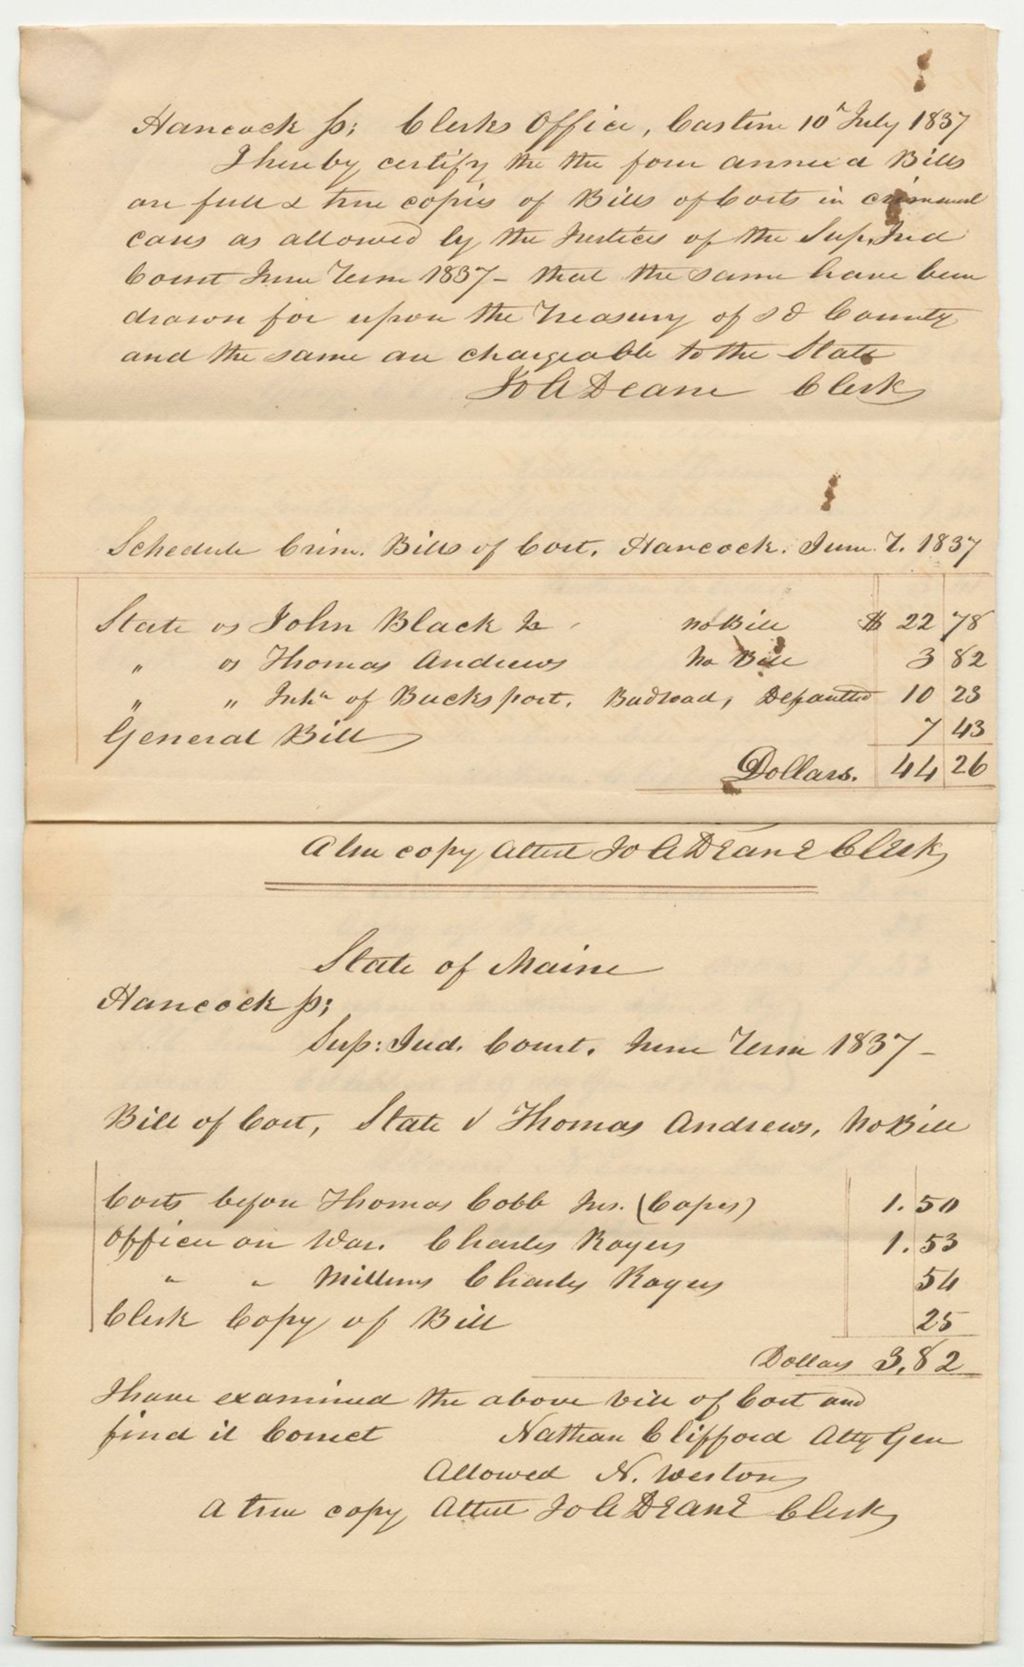 Hancock ss; Clerks Office, Castine 10th July 1837
I hereby certify the the four annexed Bills
are full & true copies of Bills of Costs in criminal
cases as allowed by the Justices of the Sup. Jud
Court June Term 1837 - that the same have been
drawn for upon the Treasury of sd County
and the same are chargeable to the State
Jo A Deane Clerk
Schedule Crim. Bills of Cost. Hancock. June T. 1837
State vs John Black Jr no Bill $ 22 78
" vs Thomas Andrews No Bill 3 82
" " Inhts of Bucksport. Bad road, Defaulted 10 23
General Bill 7 43
Dollars. 44 26
A true copy Attest Jo A Deane Clerk
State of Maine
Hancock ss;
Sup: Jud. Court. June Term 1837 -
Bill of Cost, State v Thomas Andrews, No Bill
Costs before Thomas Cobb Jus. (Copies) 1.50
Officer on War. Charles Rogers 1.53
" " Mittimus Charles Rogers 54
Clerk Copy of Bill 25
Dollars 3,82
I have examined the above bill of Cost and
find it Correct Nathan Clifford Atty Gen
Allowed N. Weston
A true copy Attest Jo A Deane Clerk